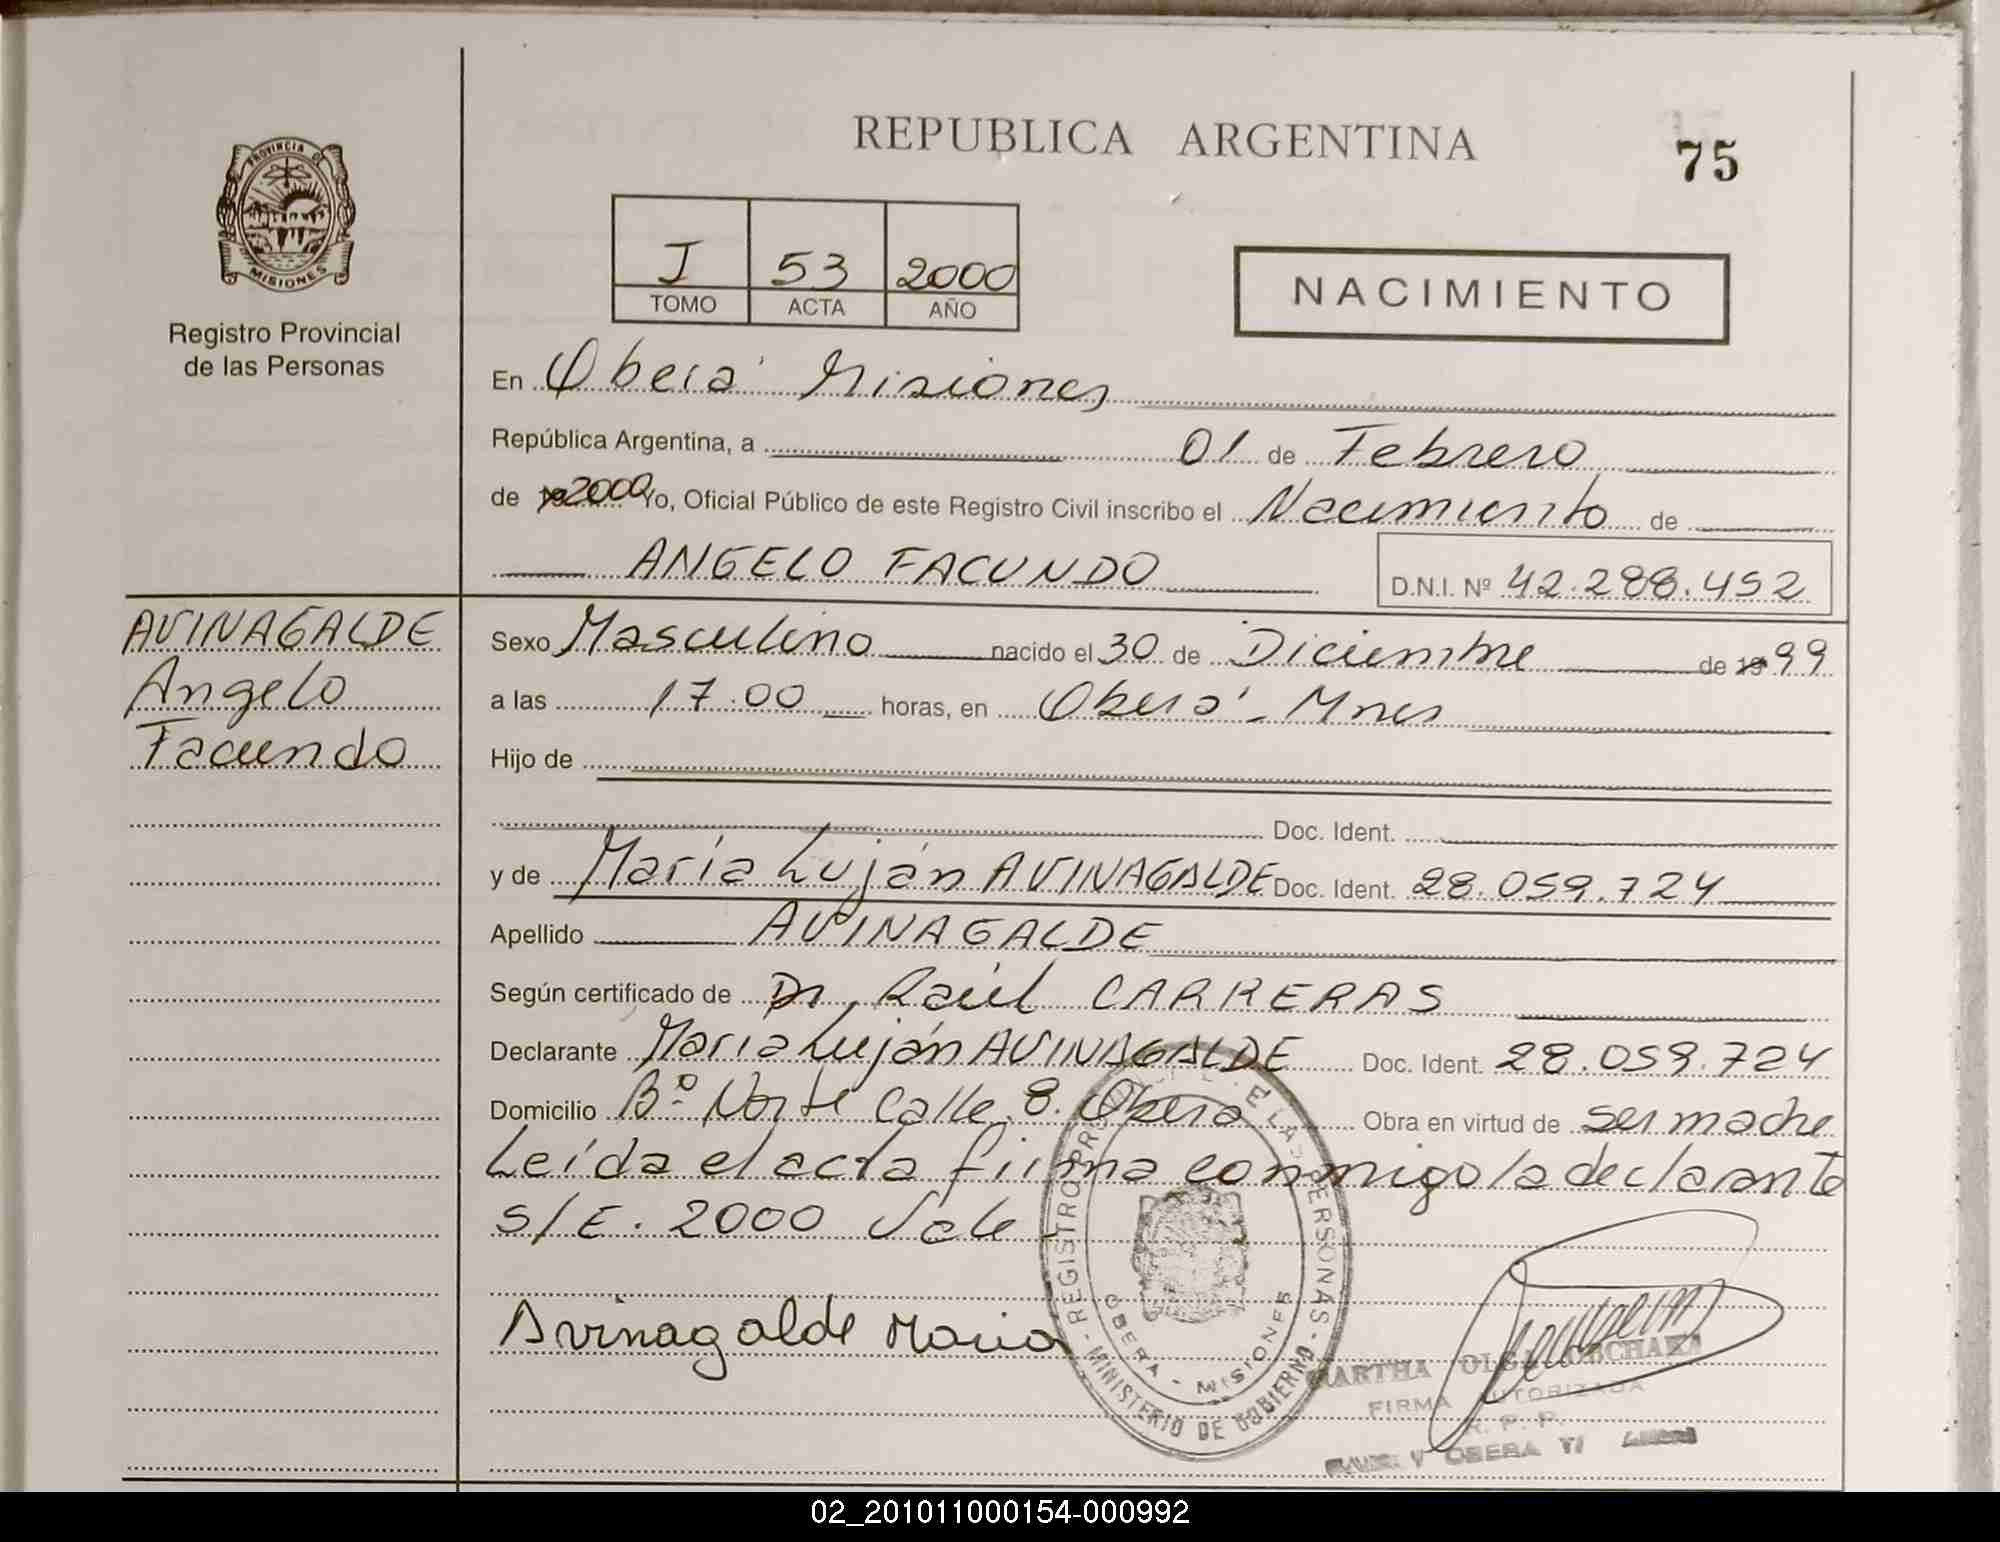 REPUBLICA ARGENTINA
75
PROVINCIA DE
MISIONES
Registro Provincial
de las Personas
J 53 2000
TOMO ACTA AÑO
NACIMIENTO
En Oberá Misiones
República Argentina, a 01 de Febrero
de 19 2000 Yo, Oficial Público de este Registro Civil inscribo el Nacimiento de
ANGELO FACUNDO D.N.I. Nº 42.288.452
AVINAGALDE
Angelo
Facundo
Sexo Masculino nacido el 30 de Diciembre de 1999
a las 17.00 horas, en Oberá - Mnes
Hijo de
Doc. Ident.
y de María Luján AVINAGALDE Doc. Ident. 28.059.724
Apellido AVINAGALDE
Según certificado de Dr. Raúl CARRERAS
Declarante María Luján AVINAGALDE Doc. Ident. 28.059.724
Domicilio Bº Norte Calle 8. Oberá Obra en virtud de ser madre
Leída el acta firma conmigo la declarante
S/E. 2000 Vale
Avinagalde Maria
REGISTRO PROVINCIAL DE LAS PERSONAS - MINISTERIO DE GOBIERNO -
OBERA - MISIONES
MARTHA OLGA
FIRMA AUTORIZADA
R. P. P.
OBERA
02_201011000154-000992